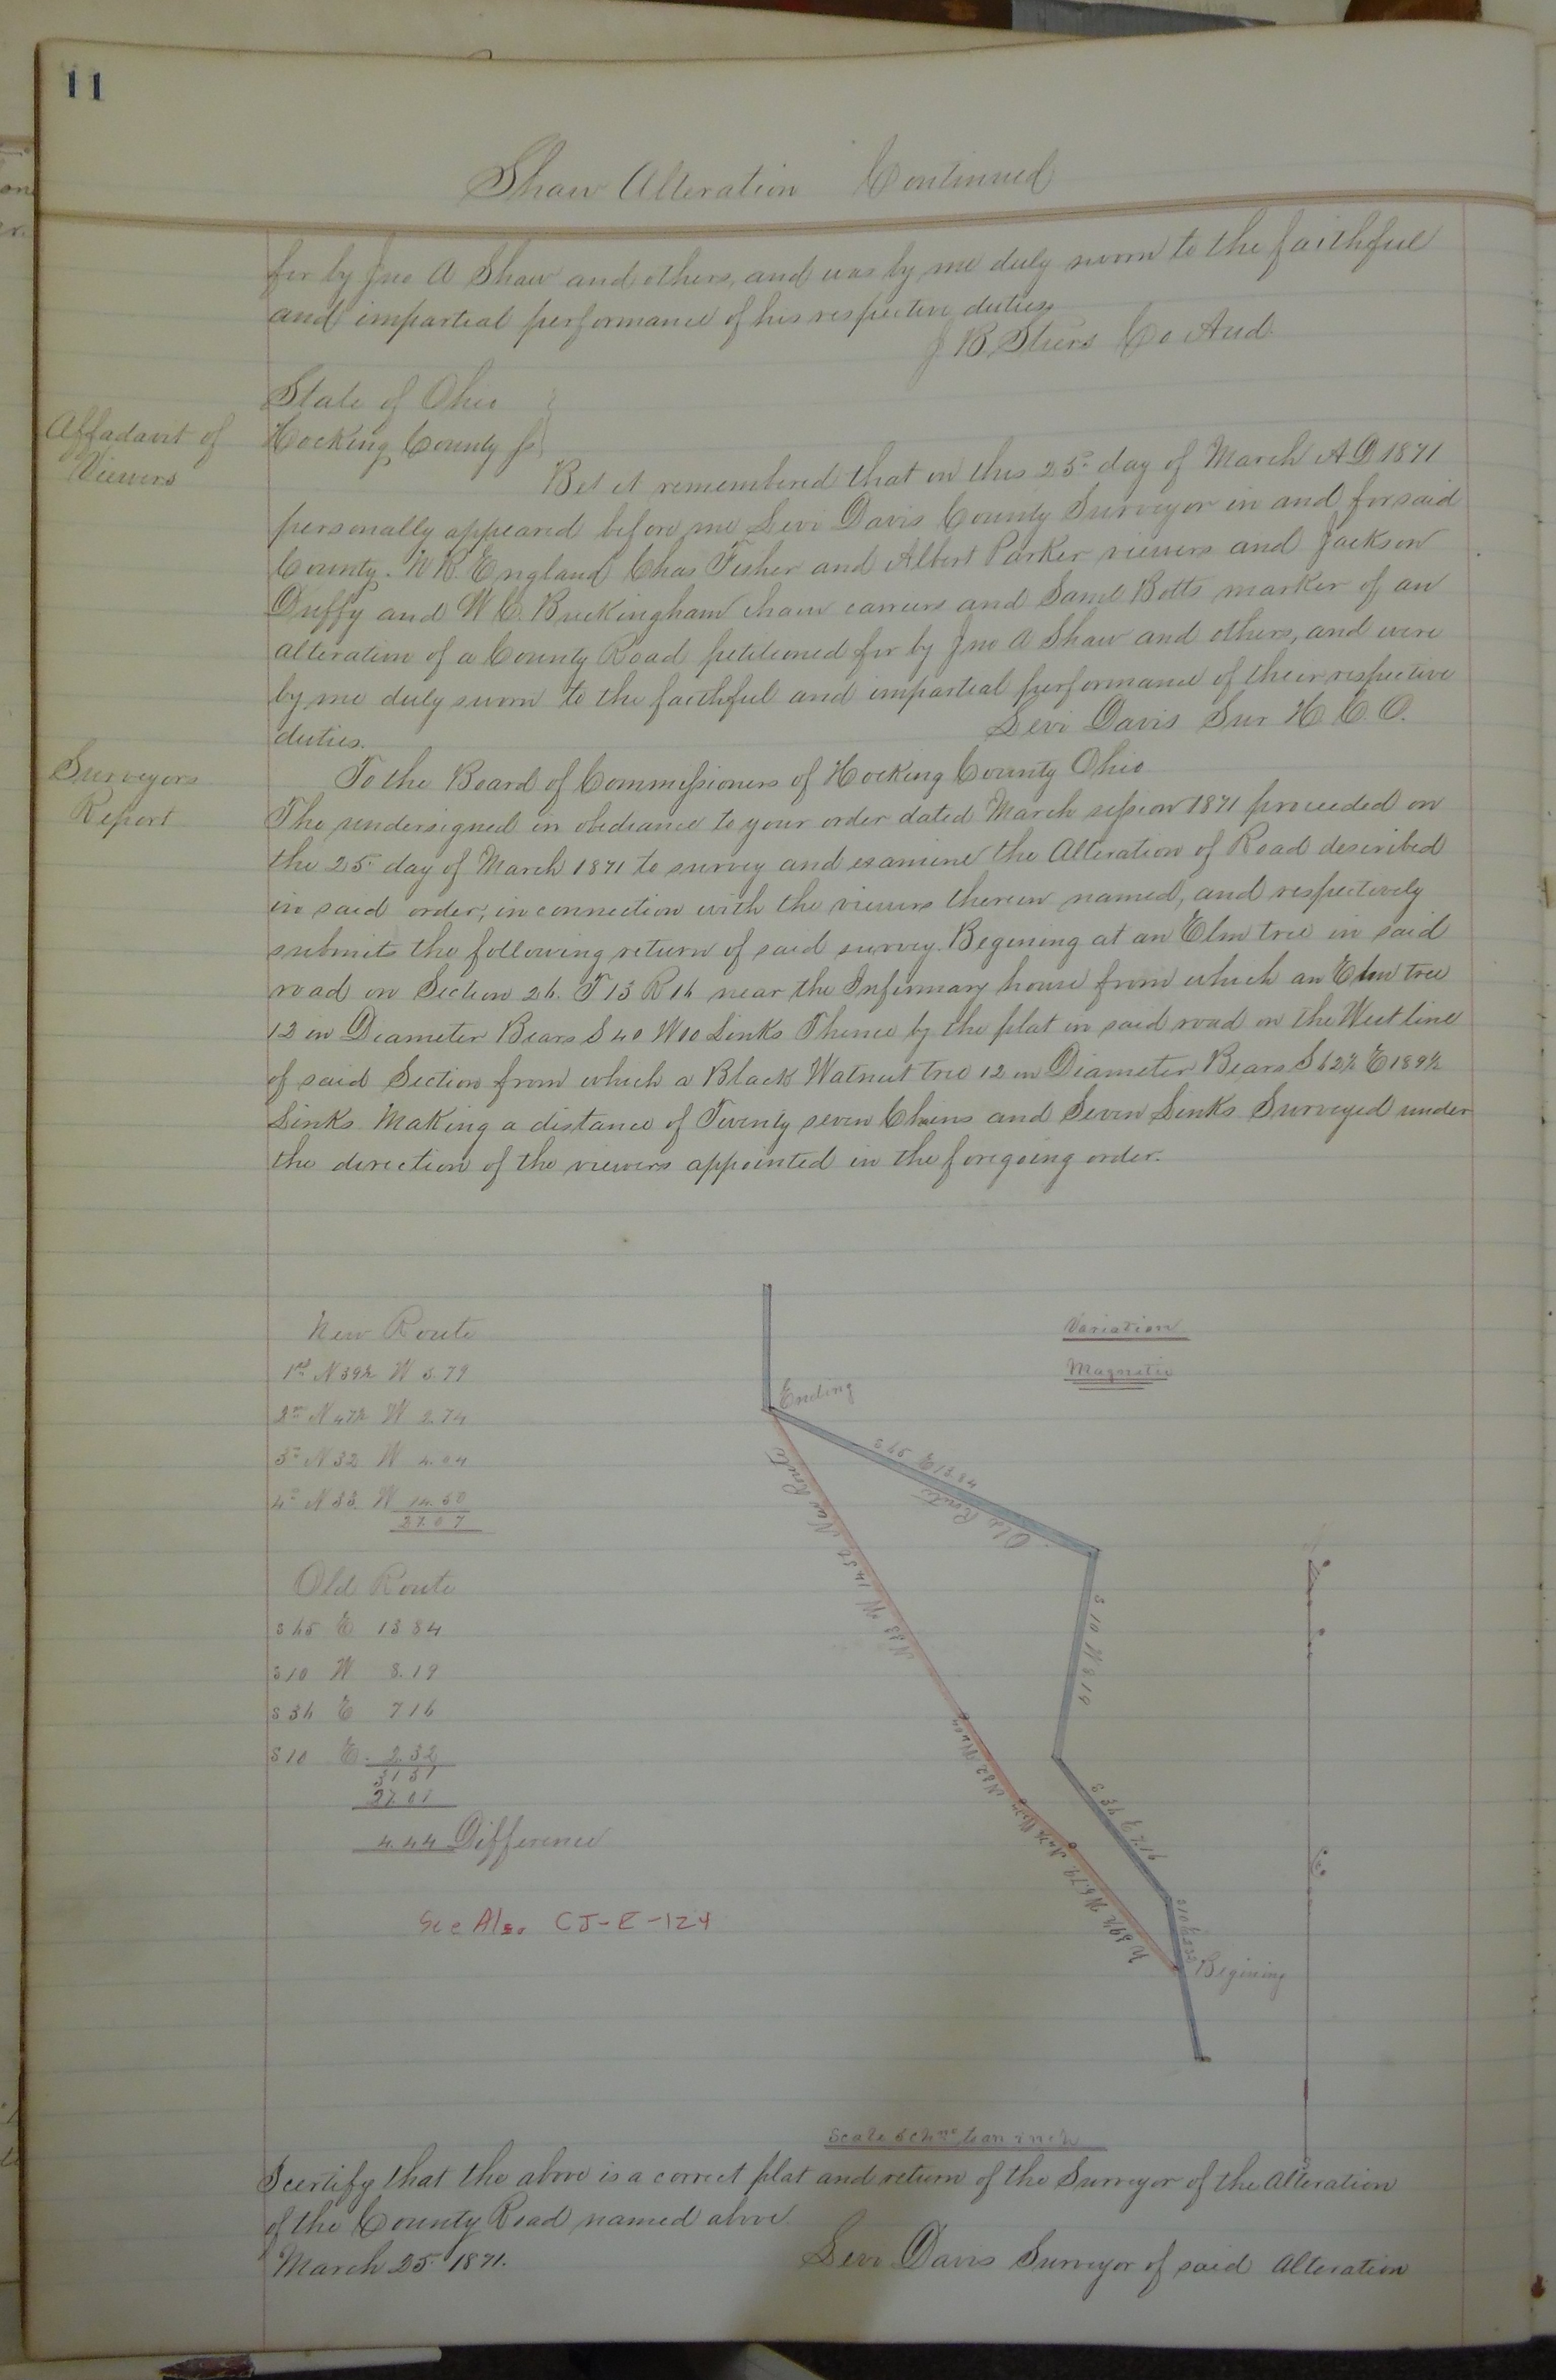 11
Shaw Alteration Continued
for by Jno A Shaw and others, and was by me duly sworn to the faithful
and impartial performance of his respective duties
J B Stiers Co Aud
State of Ohio
Hocking County ss
Affadavit of
Viewers
Bet it remembered that on this 25th day of March A D 1871
personally appeared before me Levi Davis County Surveyor in and for said
County. W R. England Chas Fisher and Albert Parker viewers and Jackson
Duffy and W C. Buckingham chain carriers and Saml Botts marker of an
alteration of a County Road petitioned for by Jno A Shaw and others, and were
by me duly sworn to the faithful and impartial performance of their respective
duties.
Levi Davis Sur H. C. O.
Surveyors
Report
To the Board of Commissioners of Hocking County Ohio
The undersigned in obediance to your order dated March session 1871 proceeded on
the 25th day of March 1871 to survey and examine the Alteration of Road described
in said order, in connection with the viewers therein named, and respectively
submits the following return of said survey. Begining at an Elm tree in said
road on Section 26. T 13 R 16 near the Infirmary house from which an Elm tree
12 in Diameter Bears S 40 W 10 Links Thence by the plat in said road on the West line
of said Section from which a Black Walnut tree 12 in Diameter Bears S 62½ E 189½
Links Making a distance of Twenty seven Chains and Seven Links Surveyed under
the direction of the viewers appointed in the foregoing order.
New Route
1st N 39½ W 5.79
2nd N 47½ W 2.74
3rd N 32 W 4.04
4th N 33. W 14.50
27.07
Old Route
S 65 E 13 84
S 10 W 8.19
S 36 E 7 16
S 10 E. 2.32
31 51
27.07
4.44 Difference
See Also CJ-E-124
Variation
Magnetic
Ending
S 65 E 13.84
Old Route
N 33 W 14.50 New Route
S 10 W 8.19
N 32 W 4.04
S 36 E 7.16
N 39½ W 5.79
S 10 E 2.32
Begining
Scale 5 chns to an inch
I certify that the above is a correct plat and return of the Surveyor of the Alteration
of the County Road named above
March 25th 1871.
Levi Davis Surveyor of said Alteration